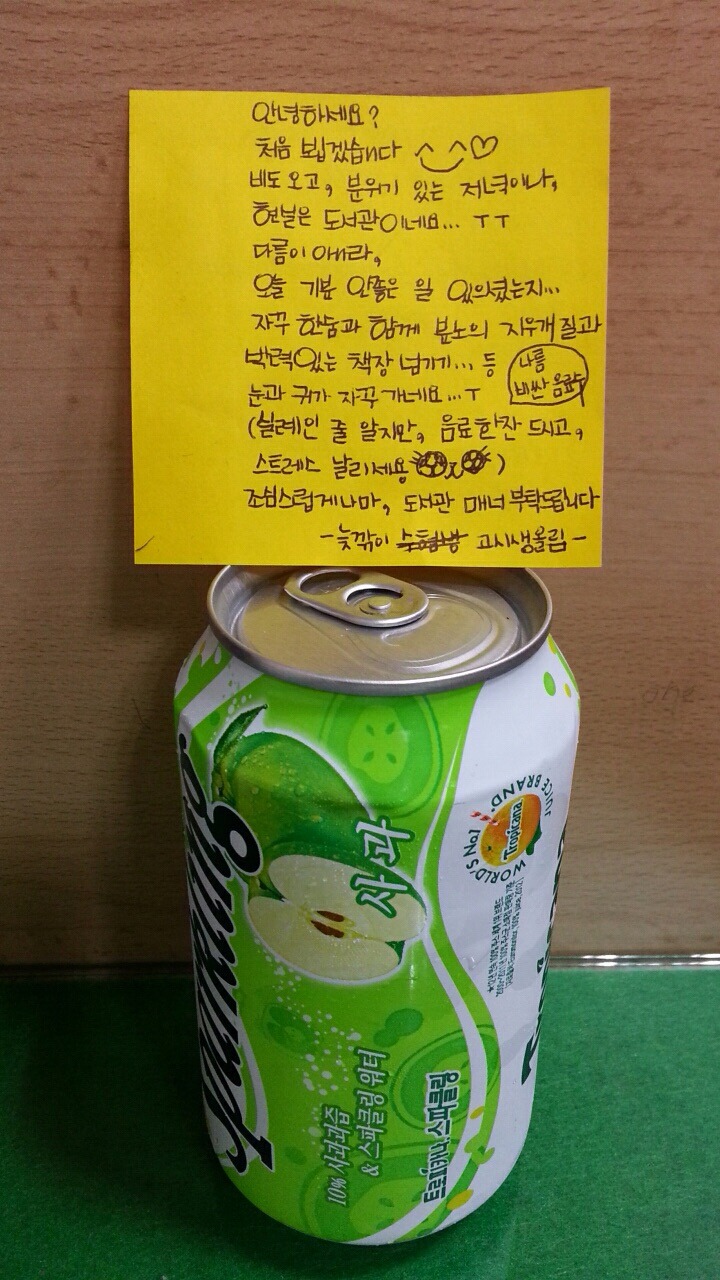 안녕하세요?
처음 뵙겠습니다 ^_^♡
비도 오고, 분위기 있는 저녁이나,
현실은 도서관이네요... ㅜㅜ
다름이 아니라,
오늘 기분 안좋은 일 있으셨는지...
자꾸 한숨과 함께 분노의 지우개질과
박력있는 책장 넘기기... 등
눈과 귀가 자꾸 가네요...ㅜ
나름
비싼 음료수
(실례인 줄 알지만, 음료한잔 드시고,
스트레스 날리세용)
조심스럽게나마, 도서관 매너 부탁드립니다
-늦깎이 고시생올림-
Sparkling
사과
10% 사과과즙
& 스파클링 워터
트로피카나 스파클링
WORLD'S No1 JUICE BRAND.
Tropicana